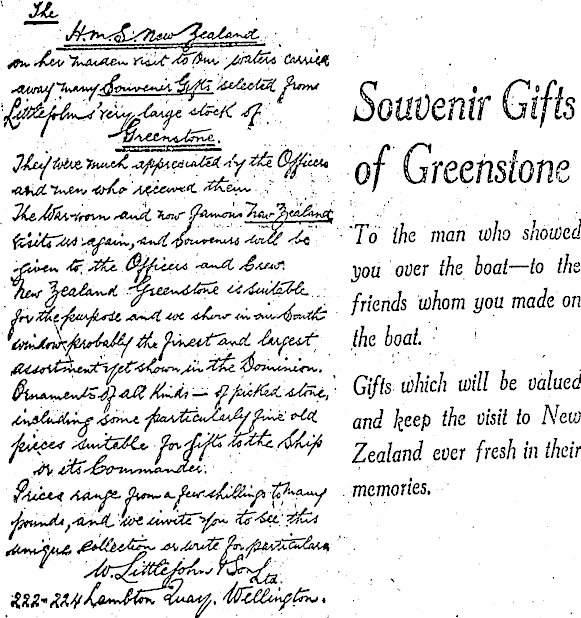 The
H.M.S. New Zealand
on her maiden visit to our waters carried
away many Souvenir Gifts selected from
Littlejohns' very large stock of
Greenstone.
They were much appreciated by the Officers
and men who received them
The War-worn and now famous New Zealand
visits us again, and Souvenirs will be
given to the Officers and Crew.
New Zealand Greenstone is suitable
for the purpose and we show in our South
window probably the finest and largest
assortment yet shown in the Dominion.
Ornaments of all Kinds — of picked stone,
including some particularly fine old
pieces suitable for gifts to the Ship
or its Commander.
Prices range from a few shillings to many
pounds, and we invite you to see this
unique collection or write for particulars
W. Littlejohn & Son Ltd.
222-224 Lambton Quay. Wellington.
Souvenir Gifts
of Greenstone
To the man who showed
you over the boat—to the
friends whom you made on
the boat.
Gifts which will be valued
and keep the visit to New
Zealand ever fresh in their
memories.